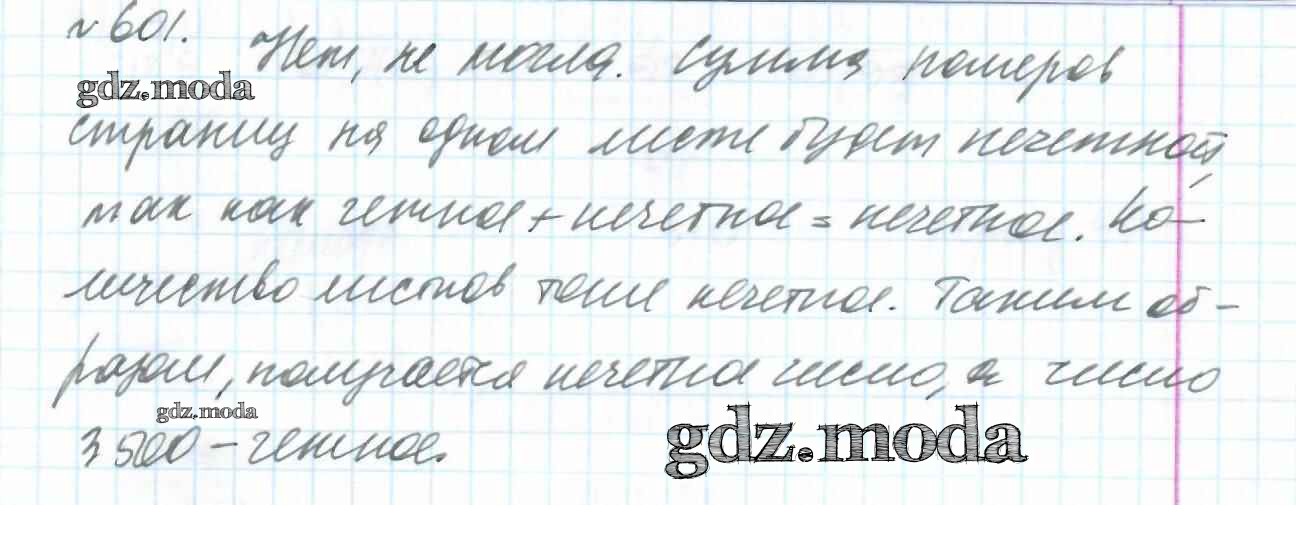 №601. Нет, не могла. Сумма номеров
gdz.moda
страниц на одном листе будет нечетной,
так как четное + нечетное = нечетное. Ко-
личество листов тоже нечетное. Таким об-
разом, получается нечетное число, а число
gdz.moda
3500 – четное.
gdz.moda